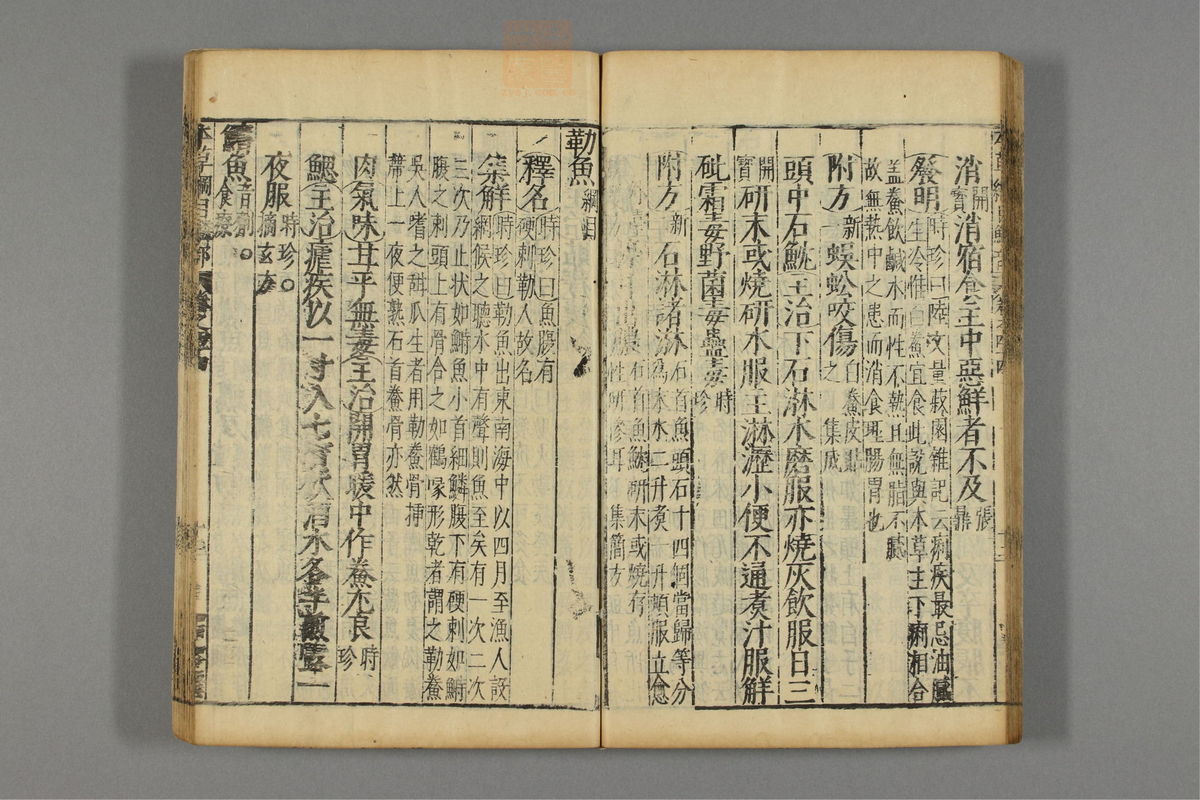 消宿食主中惡鮮者不及張鼎
開寶
發明時珍曰陸文量菽園雜記云痢疾最忌油膩
生冷惟白鯗宜食此說與本草主下痢相合
蓋鯗飲鹹水而性不熱且無脂不膩
故無熱中之患而消食理腸胃也
附方新一蜈蚣咬傷白鯗皮貼之集成
頭中石魫主治下石淋水磨服亦燒灰飲服日三
開寶研末或燒研水服主淋瀝小便不通煮汁服解
砒霜毒野菌毒蠱毒時珍
附方新石淋諸淋石首魚頭石十四個當歸等分
為末水二升煮一升頓服立愈
石首魚魫研末或燒存性研摻耳集簡方
勒魚綱目
釋名時珍曰魚腹有硬刺勒人故名
集解時珍曰勒魚出東南海中以四月至漁人設
網候之聽水中有聲則魚至矣有一次二次
三次乃止狀如鰣魚小首細鱗腹下有硬刺如鰣
腹之刺頭上有骨合之如鶴喙形乾者謂之勒鯗
吳人嗜之甜瓜生者用勒鯗骨插
蒂上一夜便熟石首鯗骨亦然
肉氣味甘平無毒主治開胃暖中作鯗尤良時珍
鰓主治瘧疾以一寸入七寶飲酒水各半煎露一
夜服時珍○摘玄方
鱭魚音劑○食療